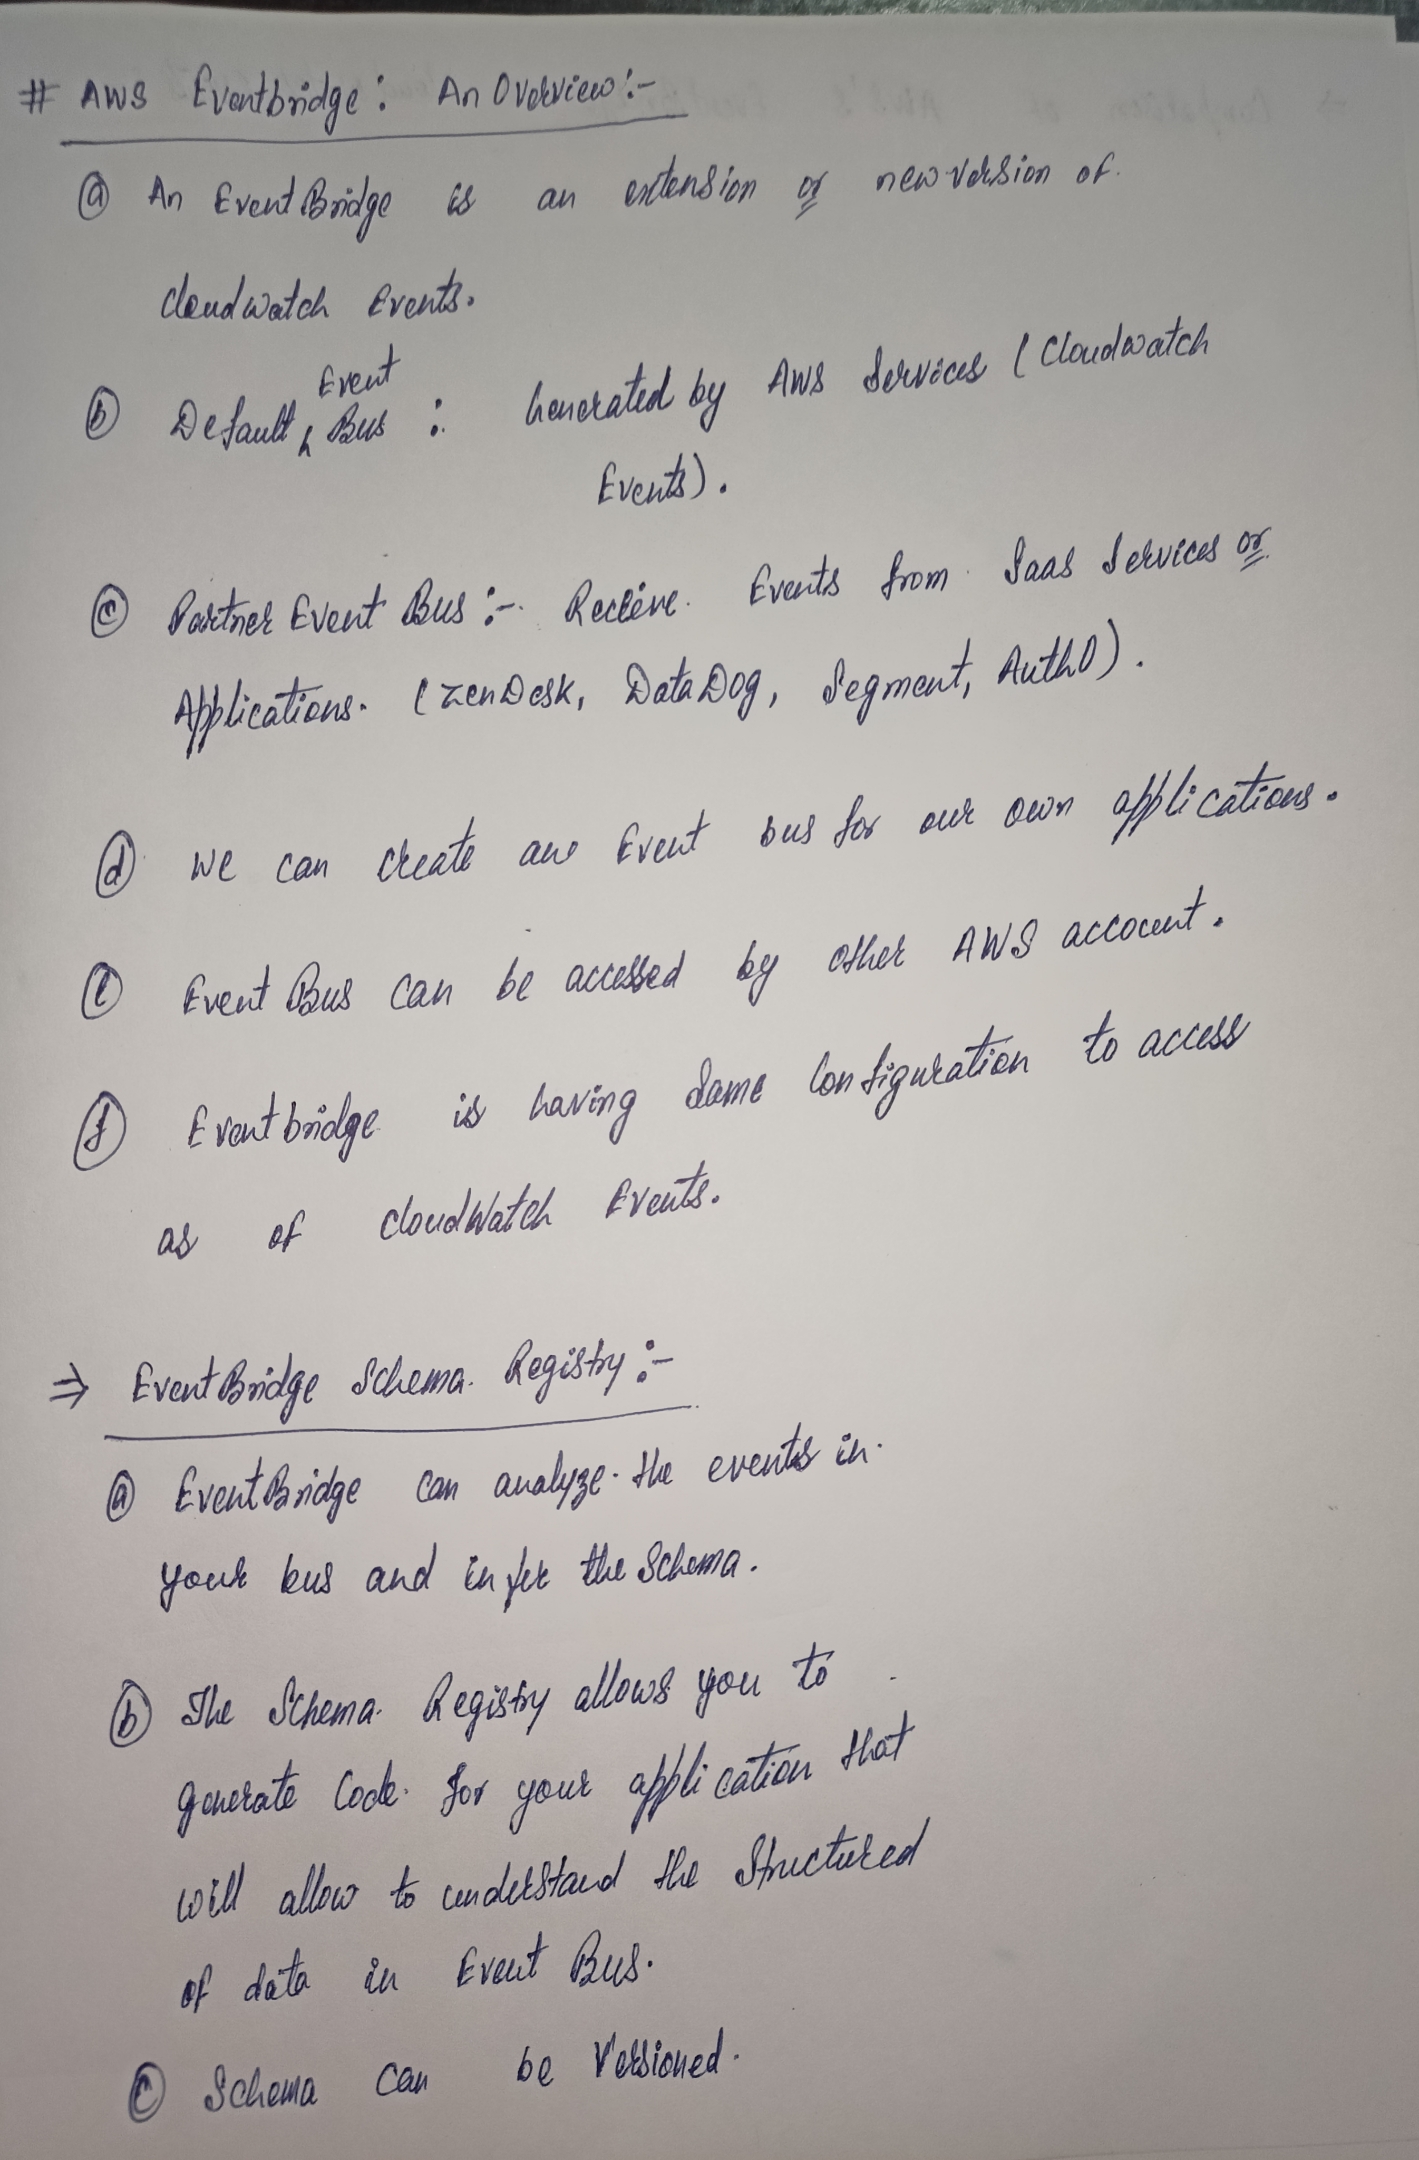 # AWS Eventbridge: An Overview:-
(a) An EventBridge is an extension or new version of
cloudwatch Events.
(b) Default Event Bus : Generated by AWS Services (Cloudwatch
Events).
(c) Partner Event Bus :- Receive Events from Saas Services or
Applications. (ZenDesk, DataDog, Segment, Auth0).
(d) We can create an Event bus for our own applications.
(e) Event Bus can be accessed by other AWS account.
(f) Eventbridge is having same Configuration to access
as of cloudWatch Events.
⇒ EventBridge Schema Registry :-
(a) EventBridge can analyze the events in
your bus and infer the Schema.
(b) The Schema Registry allows you to
generate Code for your application that
will allow to understand the Structured
of data in Event Bus.
(c) Schema can be Versioned.